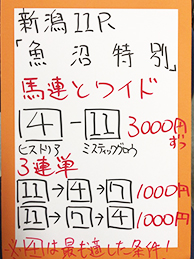 新潟11R
「魚沼特別」
馬連とワイド
4 - 11 3000円ずつ
ヒストリア ミスティックロウ
3連単
11→4→7 1000円
11→7→4 1000円
※4は最も適した条件!